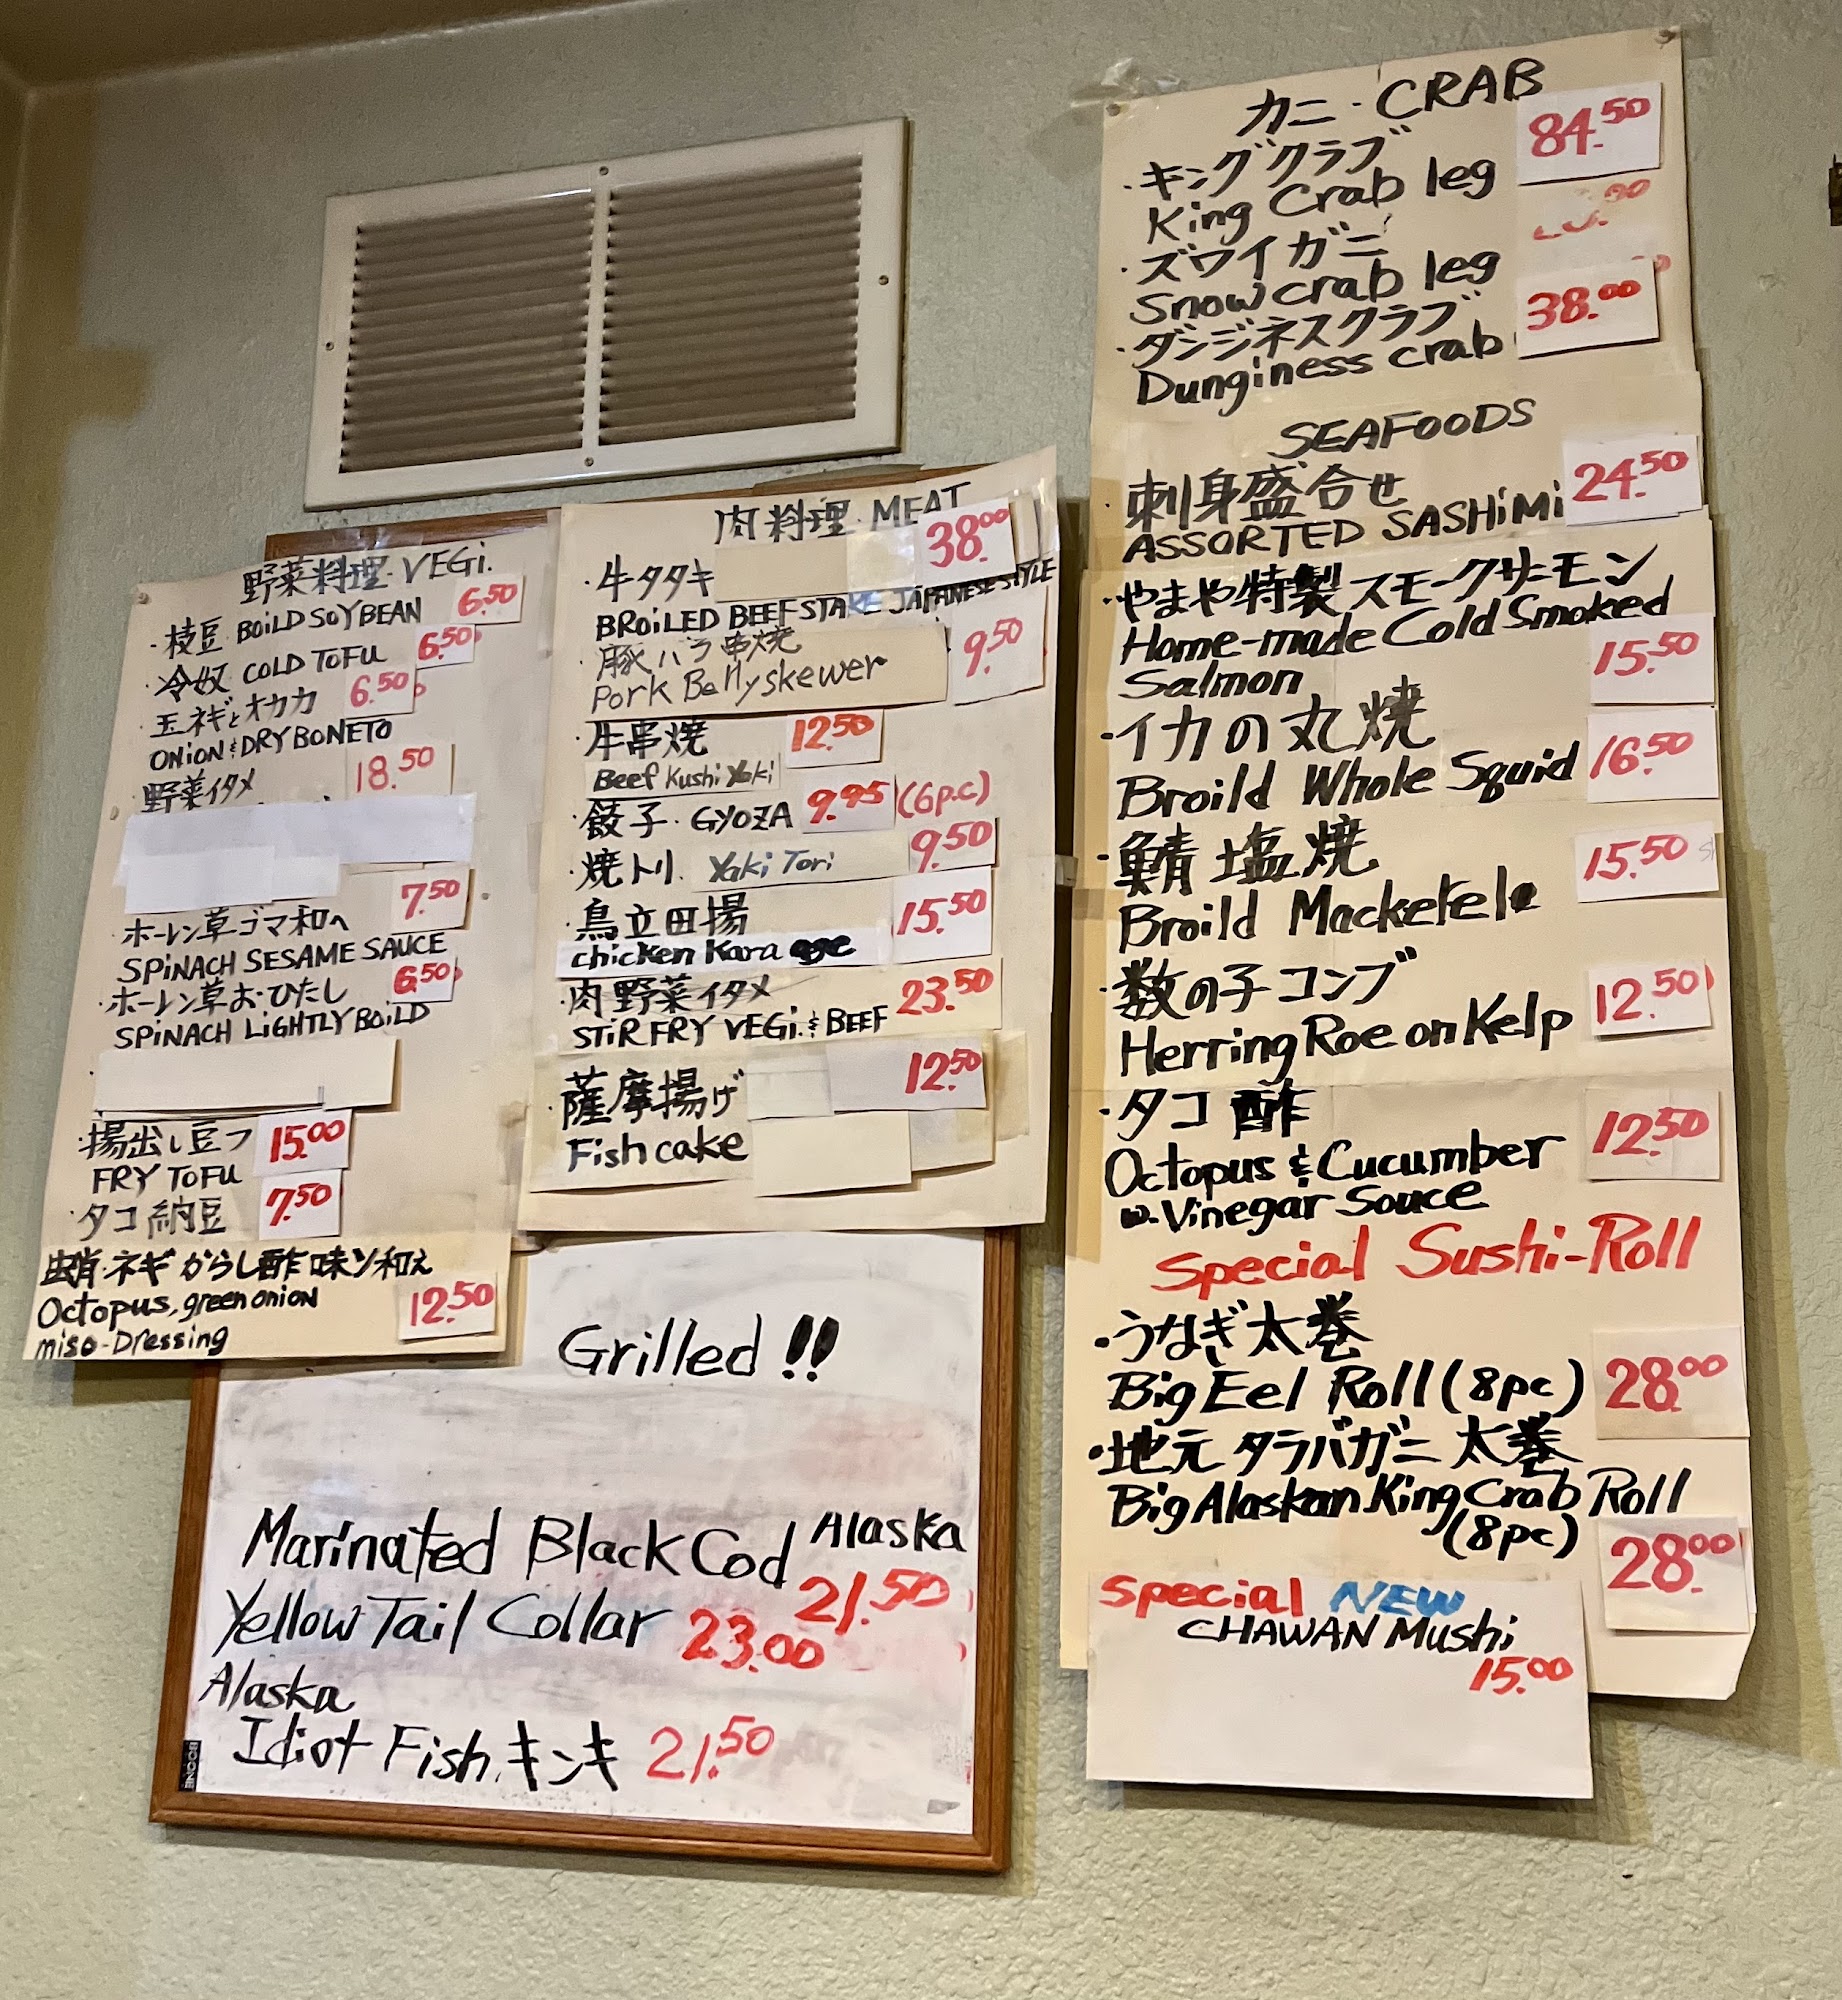 野菜料理 VEGi.
・枝豆 BOiLD SOYBEAN 6.50
・冷奴 COLD TOFU 6.50
・玉ネギとオカカ 6.50
ONiON & DRY BONETO
・野菜イタメ 18.50
・ホーレン草ゴマ和へ 7.50
SPiNACH SESAME SAUCE
・ホーレン草おひたし 6.50
SPiNACH LiGHTLY BOiLD
・揚出し豆フ 15.00
FRY TOFU
・タコ納豆 7.50
蛸・ネギ からし酢味ソ和え
Octopus, green onion 12.50
miso-Dressing
肉料理・MEAT
・牛タタキ 38.00
BROiLED BEEF STAKE JAPANESE STYLE
・豚バラ串焼 9.50
Pork Belly skewer
・牛串焼 12.50
Beef Kushi Yaki
・餃子・GYOZA 9.95 (6p.c)
・焼トリ. Yaki Tori 9.50
・鳥立田揚 15.50
chicken Kara age
・肉野菜イタメ 23.50
STiR FRY VEGi. & BEEF
・薩摩揚げ 12.50
Fish cake
Grilled !!
Marinated Black Cod Alaska
21.50
Yellow Tail Collar 23.00
Alaska
Idiot Fish. キンキ 21.50
BOONE
カニ・CRAB
・キングクラブ 84.50
King Crab leg
・ズワイガニ
Snow crab leg
・ダンジネスクラブ 38.00
Dunginess crab
SEAFOODS
・刺身盛合せ 24.50
ASSORTED SASHiMi
・やまや特製 スモークサーモン
Home-made Cold Smoked
Salmon 15.50
・イカの丸焼
Broild Whole Squid 16.50
・鯖塩焼 15.50
Broild Mackerele
・数の子コンブ 12.50
Herring Roe on Kelp
・タコ酢 12.50
Octopus & Cucumber
w. Vinegar Souce
Special Sushi-Roll
・うなぎ太巻
Big Eel Roll (8pc) 28.00
・地元タラバガニ太巻
Big Alaskan King Crab Roll
(8pc) 28.00
Special NEW
CHAWAN Mushi
15.00